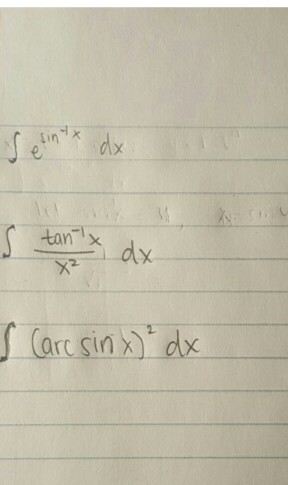 ∫ e^{sin⁻¹x} dx
∫ \frac{tan⁻¹x}{x²} dx
∫ (arc sin x)² dx